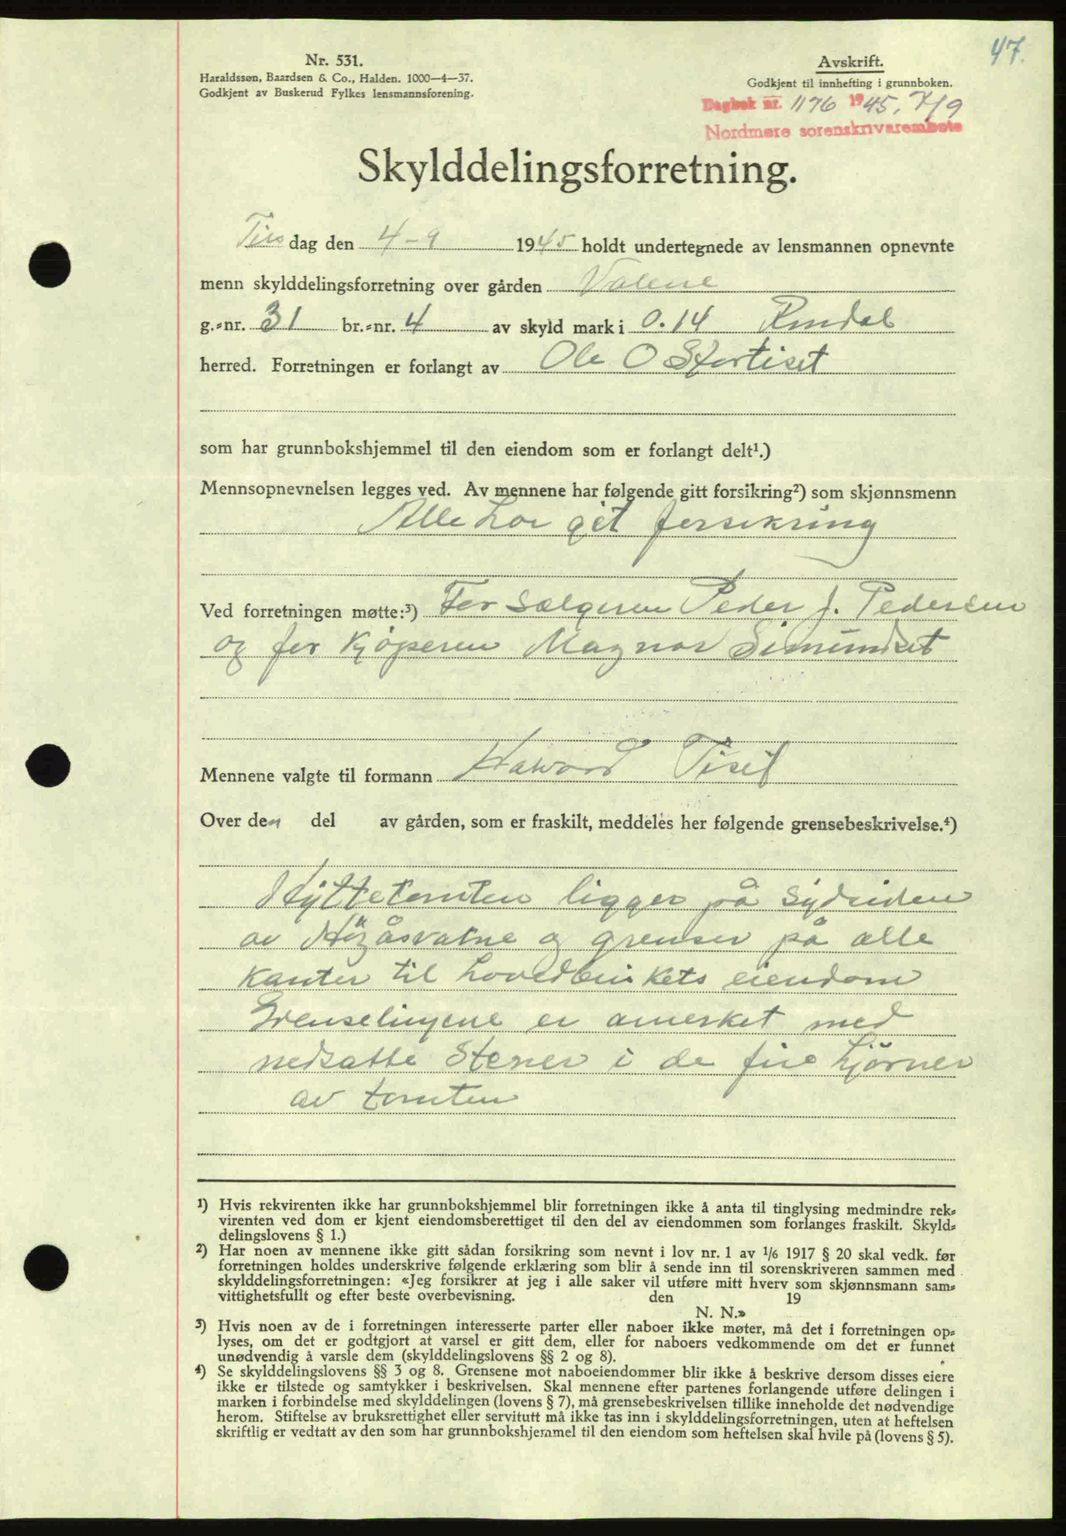 47.
Nr. 531.
Haraldssøn, Baardsen & Co., Halden. 1000—4—37.
Godkjent av Buskerud Fylkes lensmannsforening.
Avskrift.
Godkjent til innhefting i grunnboken.
Dagbok nr. 1176 1945, 7/9
Nordmøre sorenskriverembete
Skylddelingsforretning.
Tirsdag den 4-9 1945 holdt undertegnede av lensmannen opnevnte
menn skylddelingsforretning over gården
g.-nr. 31 br.-nr. 4 av skyld mark i 0.14 Rindal
herred. Forretningen er forlangt av Ole O
som har grunnbokshjemmel til den eiendom som er forlangt delt¹.)
Mennsopnevnelsen legges ved. Av mennene har følgende gitt forsikring²) som skjønnsmenn
Alle har git forsikring
Ved forretningen møtte:³) For Sælgeren Peder J. Pedersen
og for kjøperen Magnar Simundset
Mennene valgte til formann Havard Tiset
Over den del av gården, som er fraskilt, meddeles her følgende grensebeskrivelse.⁴)
Hyttetomten ligger på Sydsiden
av Høgåsvatne og grenser på alle
kanter til hovedbrukets eiendom
Grenselinjene er amerket med
nedsatte Stener i de fire hjørner
av tomten
¹) Hvis rekvirenten ikke har grunnbokshjemmel blir forretningen ikke å anta til tinglysing medmindre rek-
virenten ved dom er kjent eiendomsberettiget til den del av eiendommen som forlanges fraskilt. Skyld-
delingslovens § 1.)
²) Har noen av mennene ikke gitt sådan forsikring som nevnt i lov nr. 1 av 1/6 1917 § 20 skal vedk. før
forretningen holdes underskrive følgende erklæring som blir å sende inn til sorenskriveren sammen med
skylddelingsforretningen: «Jeg forsikrer at jeg i alle saker vil utføre mitt hverv som skjønnsmann sam-
vittighetsfullt og efter beste overbevisning. den 19
N. N.»
³) Hvis noen av de i forretningen interesserte parter eller naboer ikke møter, må det i forretningen op-
lyses, om det er godtgjort at varsel er gitt dem, eller for naboers vedkommende om det er funnet
unødvendig å varsle dem (skylddelingslovens §§ 2 og 8).
⁴) Se skylddelingslovens §§ 3 og 8. Grensene mot naboeiendommer blir ikke å beskrive dersom disses eiere
ikke er tilstede og samtykker i beskrivelsen. Skal mennene efter partenes forlangende utføre delingen i
marken i forbindelse med skylddelingen (lovens § 7), må grensebeskrivelsen tillike inneholde det nødvendige
herom. Stiftelse av bruksrettighet eller servitutt må ikke tas inn i skylddelingsforretningen, uten at heftelsen
skriftlig er vedtatt av den som har grunnbokshjemmel til den eiendom som heftelsen skal hvile på (lovens § 5).